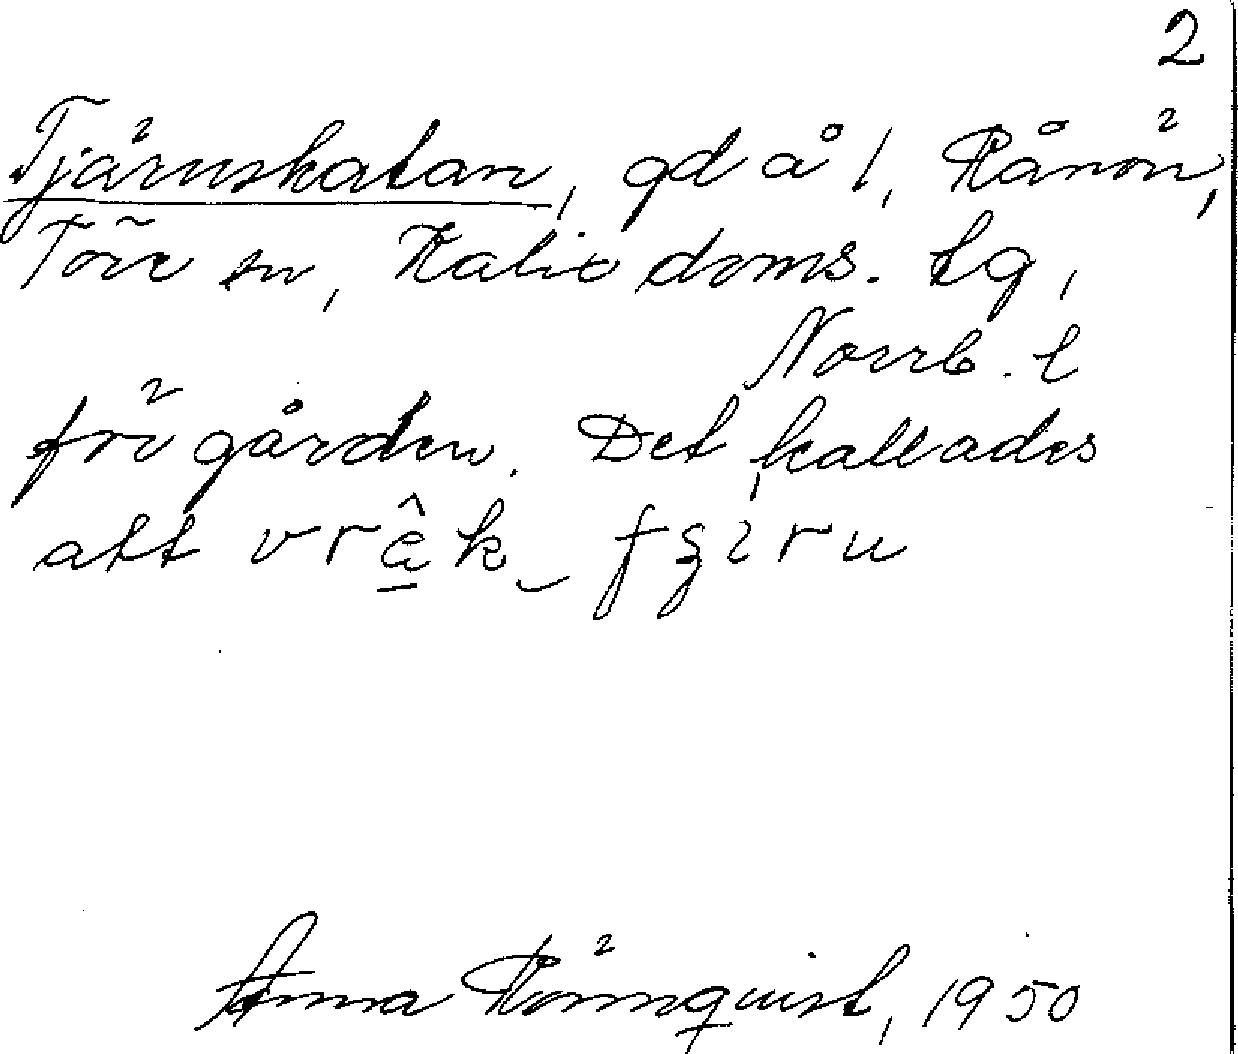 2
Tjärnskatan, gd å l, Rånön,
Töre sn, Kalix doms. tg,
Norrb. l
för gården. Det kallades
att
Anna Rönnquist, 1950